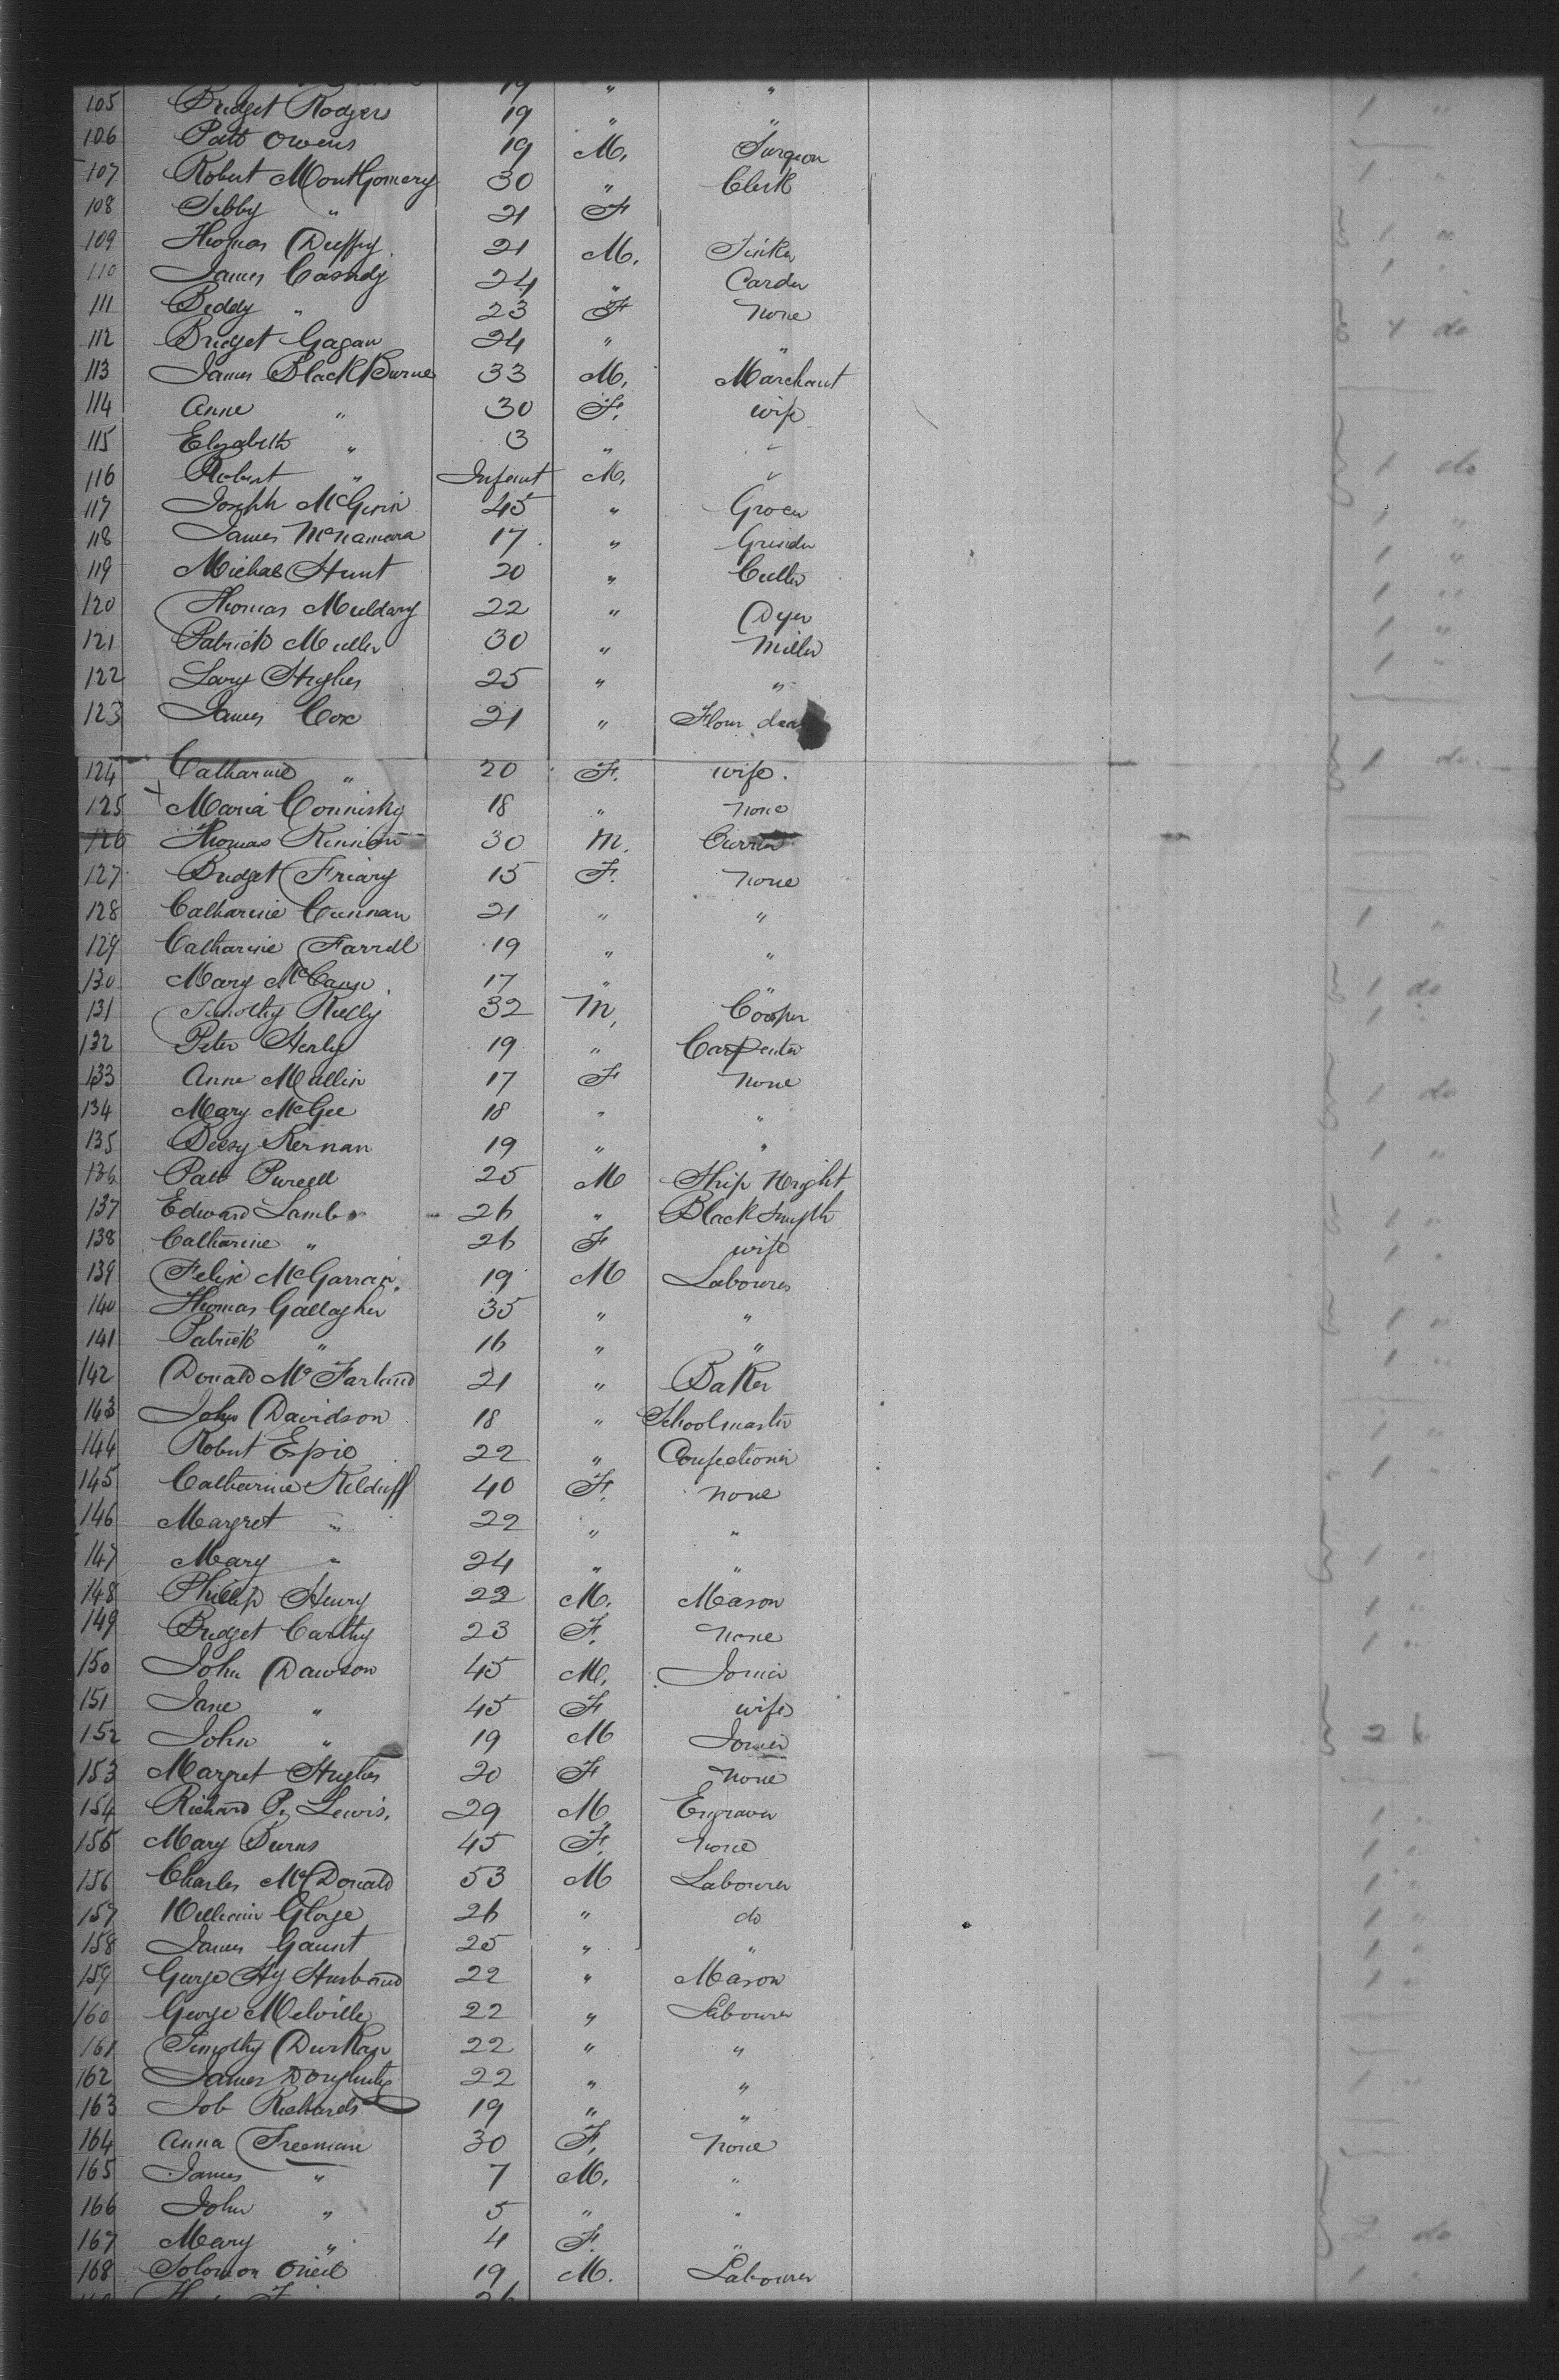 19 " "
105 Bridget Rodgers 19 " " 1 "
106 Patt Owens 19 M. Surgeon
107 Robert MontGomery 30 " Clerk 1 "
108 " 21 F
109 Thomas Duffy 21 M. 1 "
110 James Casidy 24 " Carder 1 "
111 Biddy " 23 F None
112 Bridget Gagan 24 " " do
113 James BlackBurne 33 M. Marchant
114 Anne " 30 F. wife
115 Elizabeth " 3 "
116 Robert " Infant M. 1 do
117 Joseph McGinin 45 " Grocer 1 "
118 James McNamara 17 " Grinder 1 "
119 Michael Hunt 20 " 1 "
120 Thomas Muldary 22 " Dyer 1 "
121 Patrick Muller 30 " Miller 1 "
122 Lary Hughes 25 " " 1 "
123 James Cox 21 " Flour
124 Catharine " 20 F. wife. 1 do
125 Maria Connisky 18 " none
126 Thomas 30 M. Currier
127 Bridget Friary 15 F. None
128 Catharine Cunnan 21 " " 1 "
129 Catharine Farrell 19 " "
130 Mary McCann 17 " " 1 do
131 Timothy Kelly 32 M. Cooper 1 "
132 Peter Henly 19 " Carpenter
133 Anne Mullin 17 F None 1 do
134 Mary McGee 18 " "
135 Kernan 19 " " 1 "
136 Patt Purcell 25 M Ship Wright
137 Edward Lamb 26 " BlackSmyth 1 "
138 Catharine " 26 F wife 1 "
139 Felix McGarran 19 M Labourer
140 Thomas Gallagher 35 " " 1 "
141 Patrick " 16 " "
142 Donald McFarland 21 " Baker 1 "
143 John Davidson 18 " Schoolmaster
144 Robert Epie 22 " Confectioner 1 "
145 Catharine Kilduff 40 F. none
146 Margret " 22 " "
147 Mary " 24 " " 1 "
148 Phillip Henry 22 M. Mason 1 "
149 Bridget Carthy 23 F. None 1 "
150 John Dawson 45 M. Joiner
151 Jane " 45 F wife
152 John " 19 M Joiner 2
153 Margret Hughes 20 F None
154 Richard P. Lewis. 29 M Engraver 1 "
155 Mary Burns 45 F. None 1 "
156 Charles McDonald 53 M Labourer 1 "
157 William 26 " do 1 "
158 James Gaunt 25 " " 1 "
159 George Hy Husband 22 " Mason 1 "
160 George Melville 22 " Labourer
161 Timothy Durkan 22 " "
162 James Dougherty 22 " " 1 "
163 Job Richards 19 " "
164 Anna Freeman 30 F. None
165 James " 7 M. "
166 John " 5 " "
167 Mary " 4 F. " 2 do
168 Solomon Oneil 19 M. Labourer 1 "